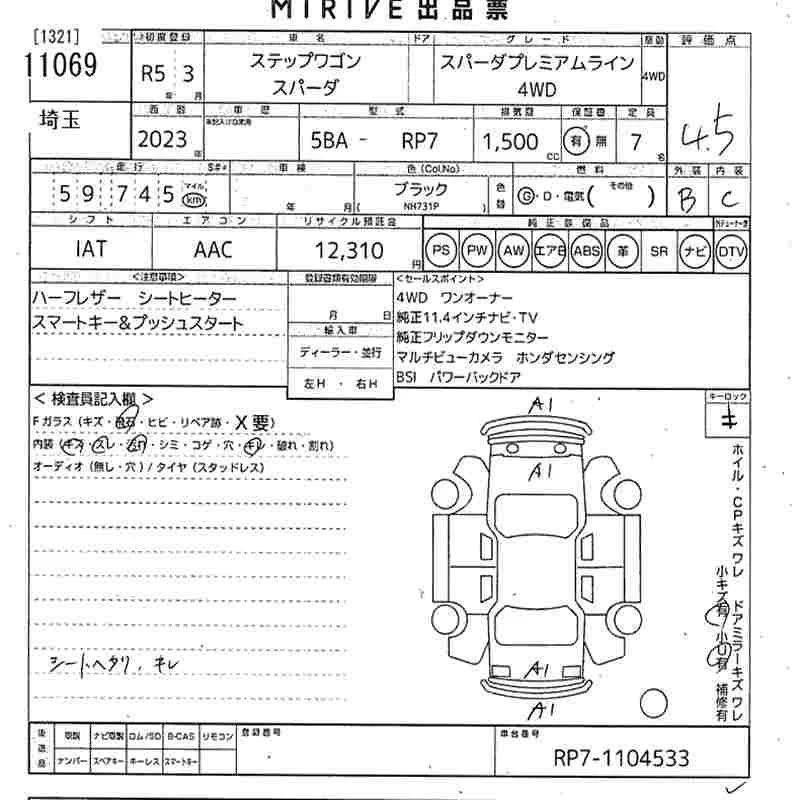 MIRIVE 出品票
[1321]
11069
埼玉
初度登録
R5 3
年 月
車名
ステップワゴン
スパーダ
ドア
グレード
スパーダプレミアムライン
4WD
駆動
4WD
評価点
4.5
西暦
2023
年
車歴
型式
5BA - RP7
排気量
1,500
CC
保証書
有 無
定員
7
名
走行
59745
マイル
km
S#*
車検
年 月
色(Col,No)
ブラック
NH731P
色替
燃料
G・D・電気( その他 )
外装
B
内装
C
シフト
IAT
エアコン
AAC
リサイクル預託金
12,310
円
純正装備品
PS PW AW エアB ABS 革 SR ナビ DTV
<注意事項>
ハーフレザー シートヒーター
スマートキー&プッシュスタート
登録書類有効期限
月 日
輸入車
ディーラー・並行
左H ・ 右H
<セールスポイント>
4WD ワンオーナー
純正11.4インチナビ・TV
純正フリップダウンモニター
マルチビューカメラ ホンダセンシング
BSI パワーバックドア
< 検査員記入欄 >
Fガラス(キズ・飛石・ヒビ・リペア跡・X要)
内装(キズ・スレ・汚れ・シミ・コゲ・穴・キレ・破れ・割れ)
オーディオ(無し・穴)/タイヤ(スタッドレス)
シートヘタリ、キレ
A1
A1
A1
A1
キーロック
キ
ホイル・CPキズワレ
小キズ有 小U有 補修有
ドアミラーキズワレ
後送品
取説 ナビ取説 ロム/SD B-CAS リモコン
ナンバー スペアキー ホーレス スマートキー
登録番号
車台番号
RP7-1104533